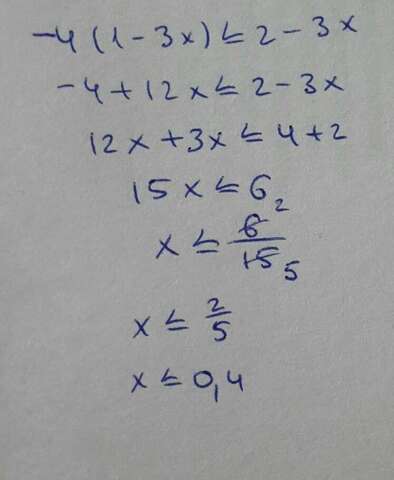 -4(1-3x)≤2-3x
-4+12x≤2-3x
12x+3x≤4+2
15x≤6
x≤6/15 2 5
x≤2/5
x≤0,4